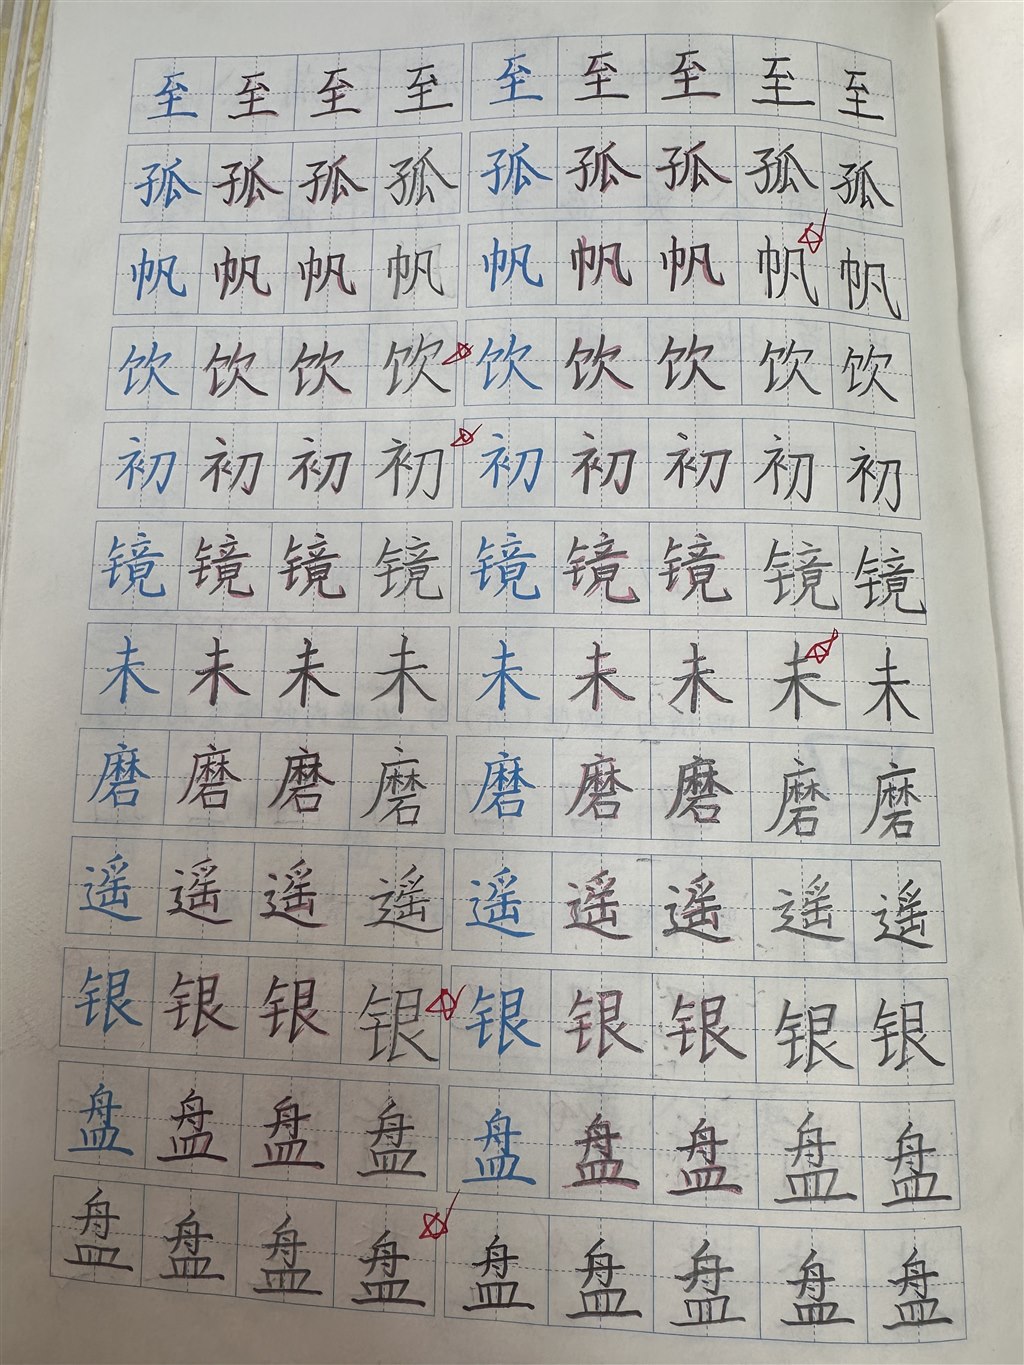 至至至至至至至至至
孤孤孤孤孤孤孤孤孤
帆帆帆帆帆帆帆帆帆
饮饮饮饮饮饮饮饮饮
初初初初初初初初初
镜镜镜镜镜镜镜镜镜
未未未未未未未未未
磨磨磨磨磨磨磨磨磨
遥遥遥遥遥遥遥遥遥
银银银银银银银银银
盘盘盘盘盘盘盘盘盘
盘盘盘盘盘盘盘盘盘